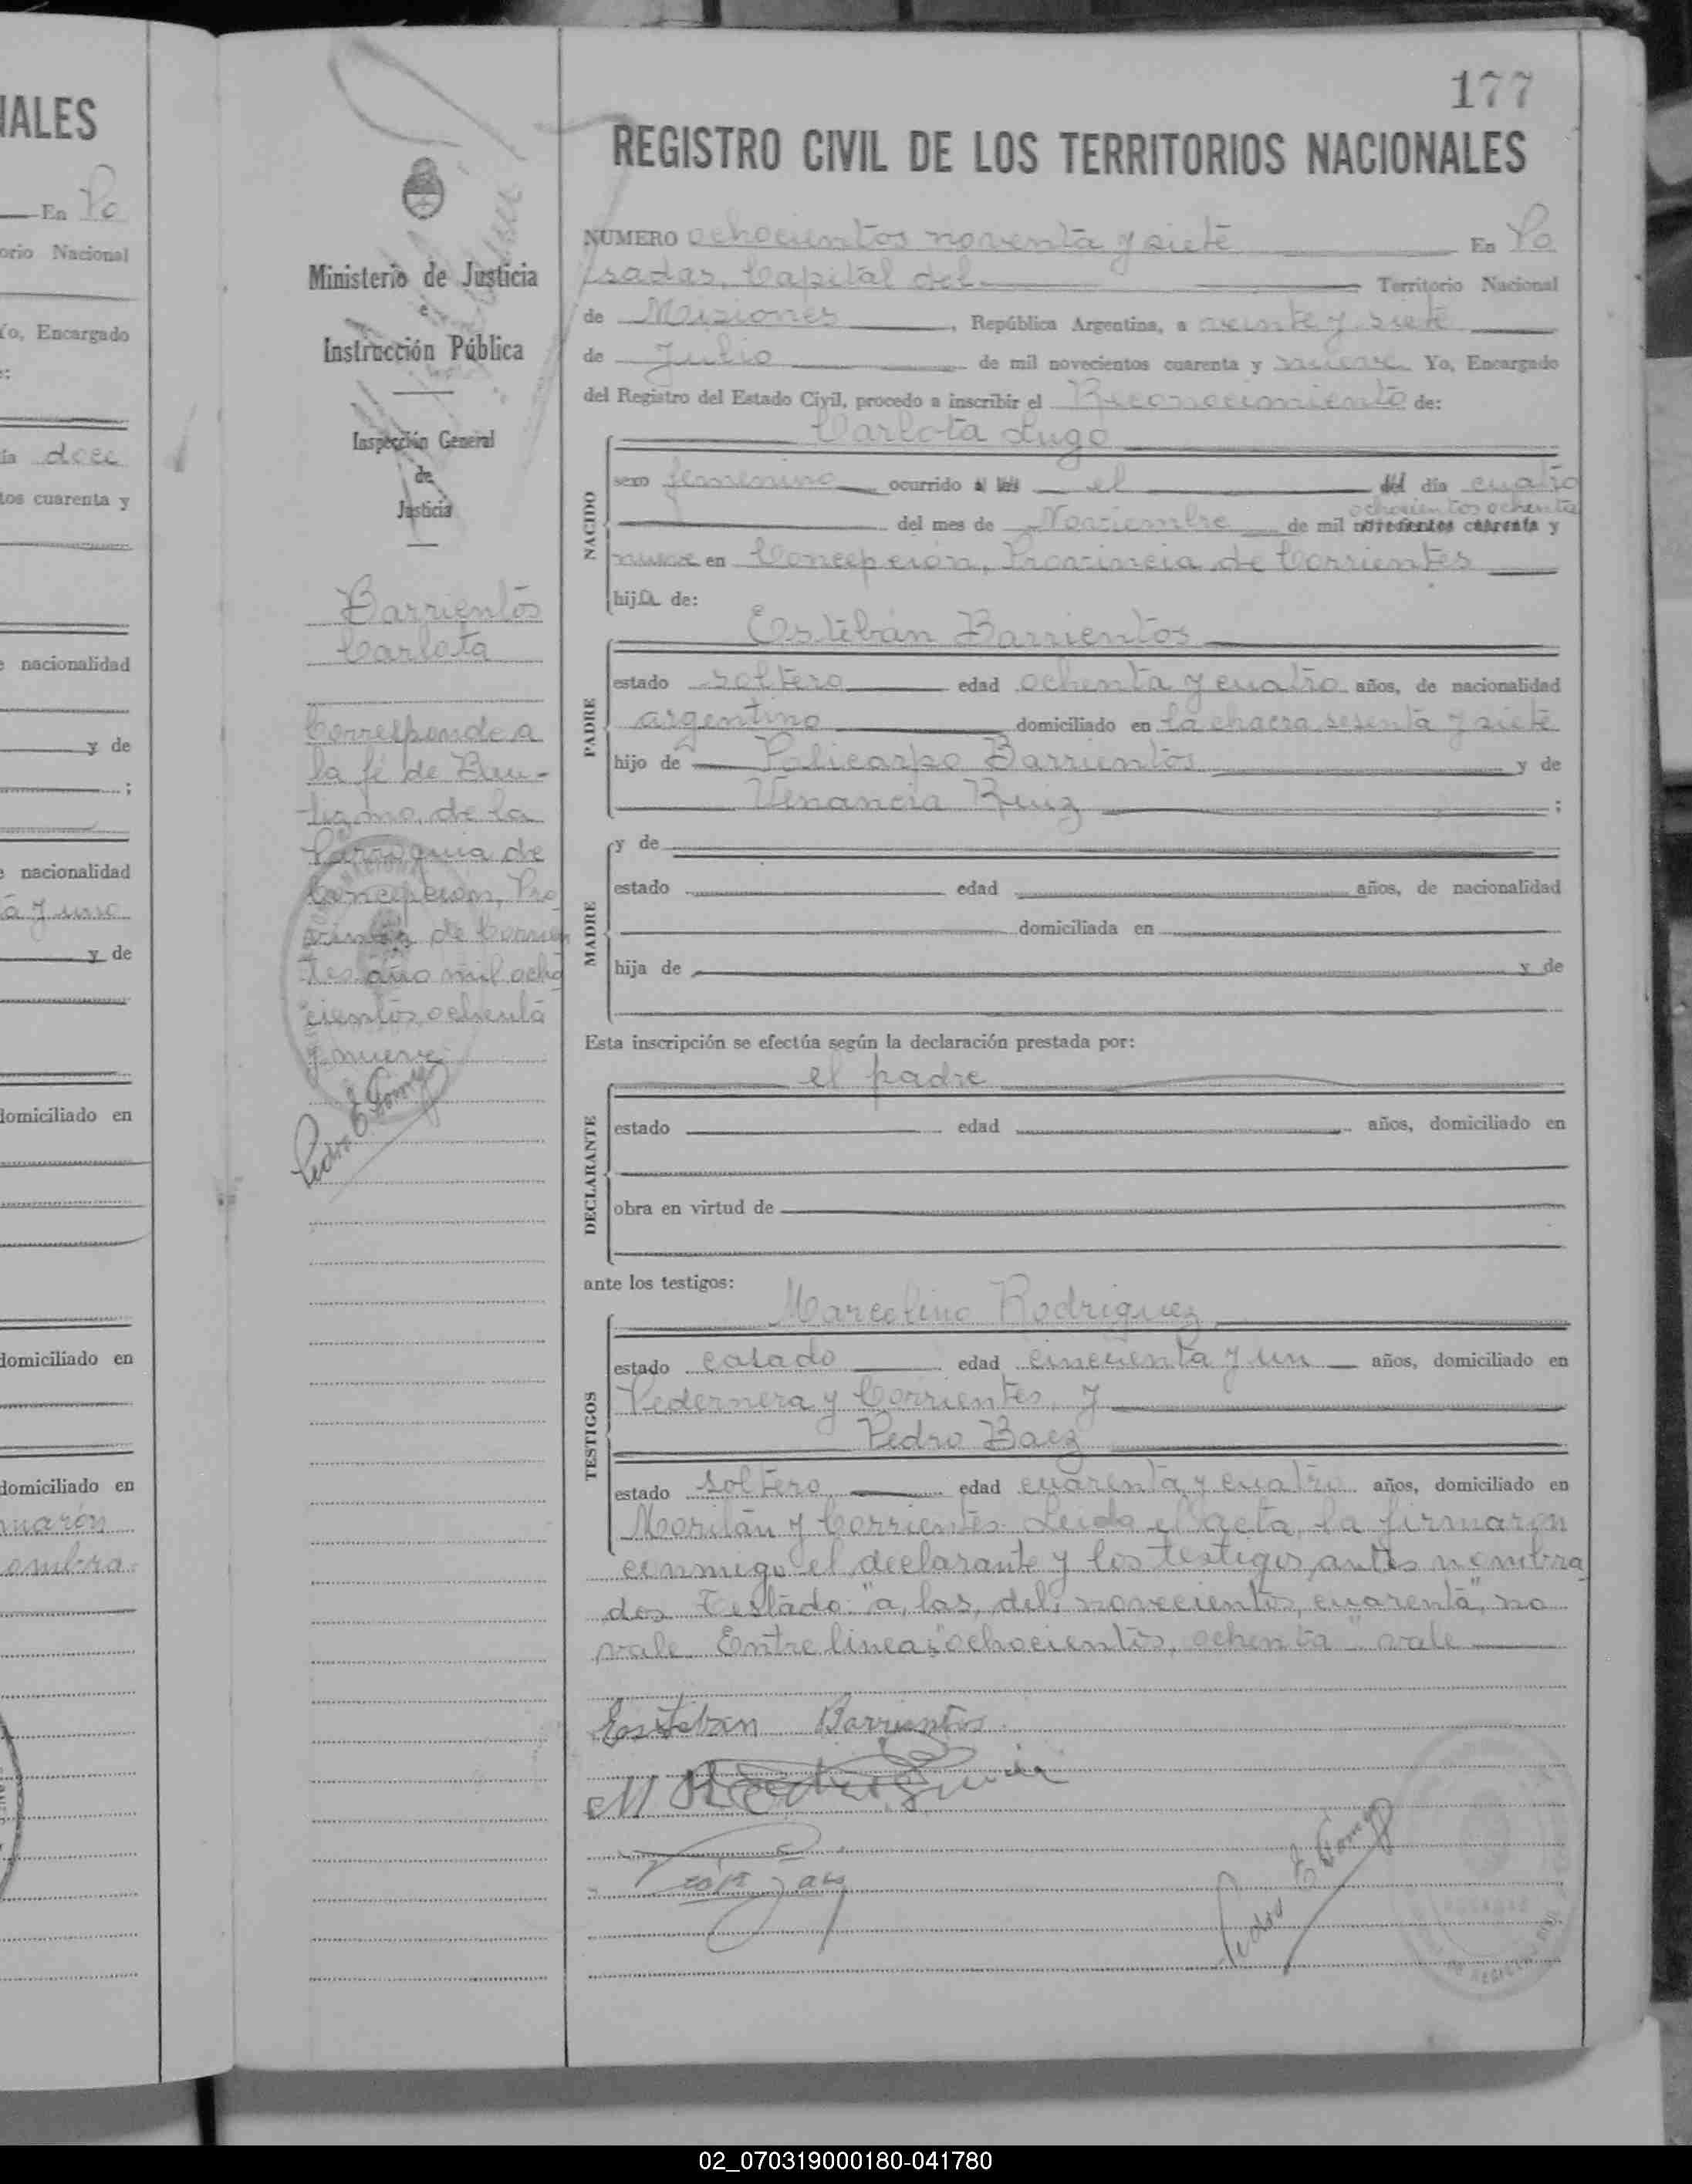 177
REGISTRO CIVIL DE LOS TERRITORIOS NACIONALES
NÚMERO ochocientos noventa y siete En Po
sadas, Capital del Territorio Nacional
de Misiones, República Argentina, a veinte y siete
de Julio de mil novecientos cuarenta y nueve Yo, Encargado
del Registro del Estado Civil, procedo a inscribir el Reconocimiento de:
Carlota Lugo
NACIDO
sexo femenino ocurrido a las el del día cuatro
ochocientos ochenta
del mes de Noviembre de mil novecientos cuarenta y
nueve en Concepción, Provincia de Corrientes
hija de:
Estéban Barrientos
PADRE
estado soltero edad ochenta y cuatro años, de nacionalidad
argentino domiciliado en la chacra sesenta y siete
hijo de Policarpo Barrientos y de
Venancia Ruiz ;
MADRE
y de
estado edad años, de nacionalidad
domiciliada en
hija de y de
Esta inscripción se efectúa según la declaración prestada por:
el padre
DECLARANTE
estado edad años, domiciliado en
obra en virtud de
ante los testigos:
Marcelino Rodriguez
TESTIGOS
estado casado edad cincuenta y un años, domiciliado en
Pedernera y Corrientes, y
Pedro Baez
estado soltero edad cuarenta y cuatro años, domiciliado en
Morilán y Corrientes. Leida el acta, la firmaron
conmigo el declarante y los testigos antes nombra
dos Testado: "a, las, del, novecientos, cuarenta", no
vale. Entre lineas: "ochocientos, ochenta" vale
Esteban Barrientos
Pedro E Gomez
Ministerio de Justicia
e
Instrucción Pública
Inspección General
de
Justicia
Barrientos
Carlota
Corresponde a
la fé de Bau-
tizmo de la
Parroquia de
Concepción, Pro
vincia de Corrien
tes año mil ocho
cientos ochenta
y nueve
Pedro E Gomez
IALES
En Po
orio Nacional
Yo, Encargado
ía doce
tos cuarenta y
e nacionalidad
y de
;
e nacionalidad
a y uno
y de
domiciliado en
domiciliado en
domiciliado en
maron
ombra-
02_070319000180-041780